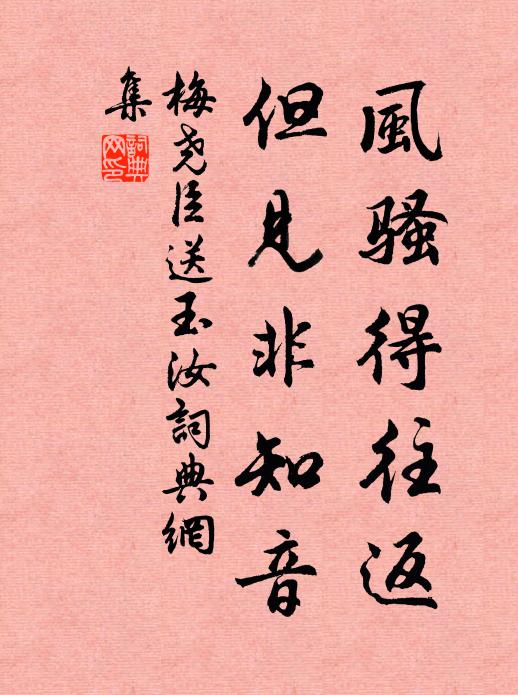 風騷得往返
但見非知音
梅堯臣送玉汝詞典網
集
詞典
網印